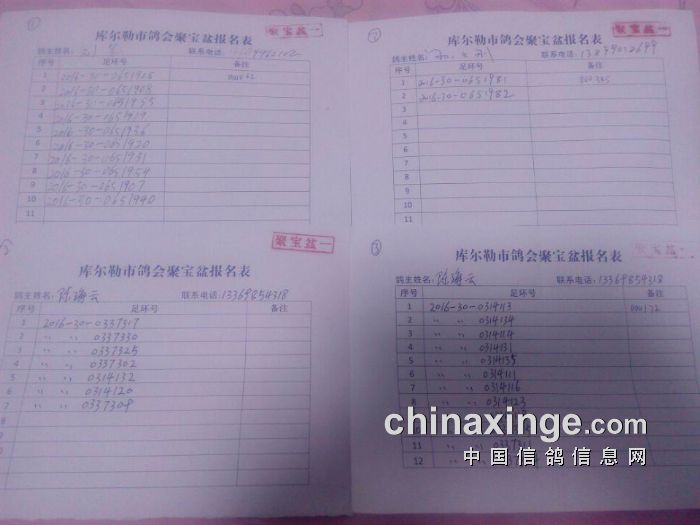 聚宝盆一
库尔勒市鸽会聚宝盆报名表
鸽主姓名: 联系电话:
序号 足环号 备注
1 2016-30-0651905
2 2016-30-0651908
3
4 2016-30-0651919
5 2016-30-0651936
6 2016-30-0651920
7 2016-30-0651931
8 2016-30-0651954
9 2016-30-0651907
10 2016-30-0651940
11
聚宝盆一
库尔勒市鸽会聚宝盆报名表
鸽主姓名: 联系电话:
序号 足环号 备注
1 2016-30-0651981
2 2016-30-0651982
3
4
5
6
7
8
9
10
11
聚宝盆一
库尔勒市鸽会聚宝盆报名表
鸽主姓名: 陈海云 联系电话:13369854318
序号 足环号 备注
1 2016-30-0337317
2 〃 〃 0337330
3 〃 〃 0337325
4 〃 〃 0337302
5 〃 〃 0314132
6 〃 〃 0314120
7 〃 〃 0337309
③
聚宝盆一
库尔勒市鸽会聚宝盆报名表
鸽主姓名: 陈海云 联系电话:13369854318
序号 足环号 备注
1 2016-30-0314113
2 〃 〃 0314134
3 〃 〃 0314114
4 〃 〃 0314131
5 〃 〃 0314135
6 〃 〃 0314111
7 〃 〃 0314116
8 〃 〃 0314123
11
12
chinaxinge.com
中国信鸽信息网